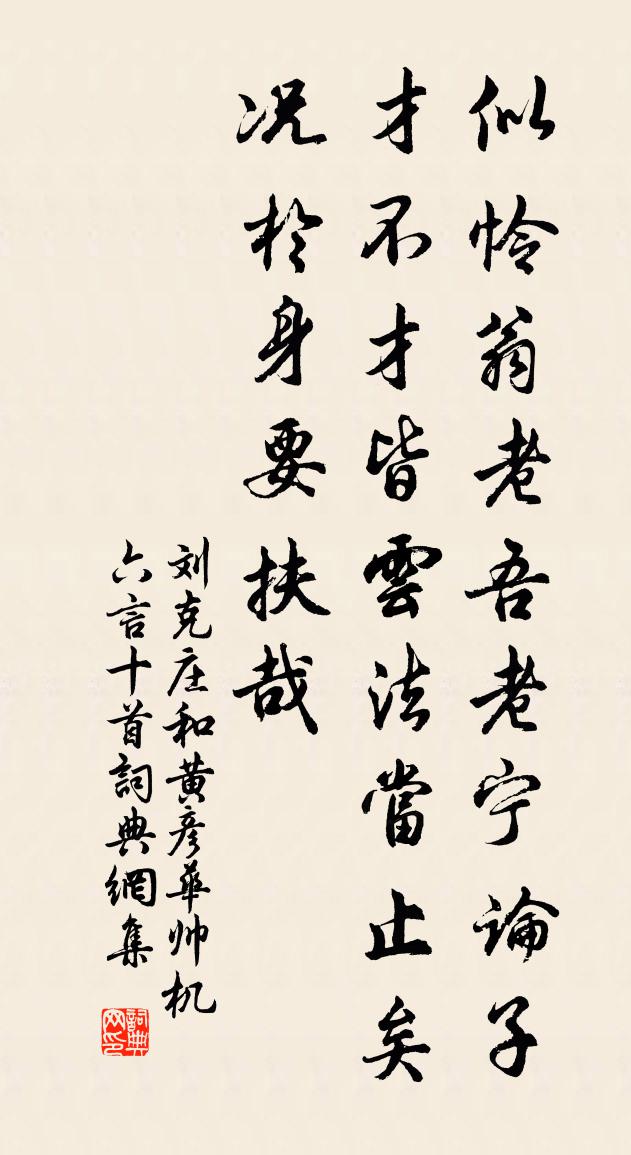 似怜翁老吾老宁論子
才不才皆雲法當止矣
况於身要扶哉
刘克庄和黄彦華帅机
六言十首詞典網集
詞典網印